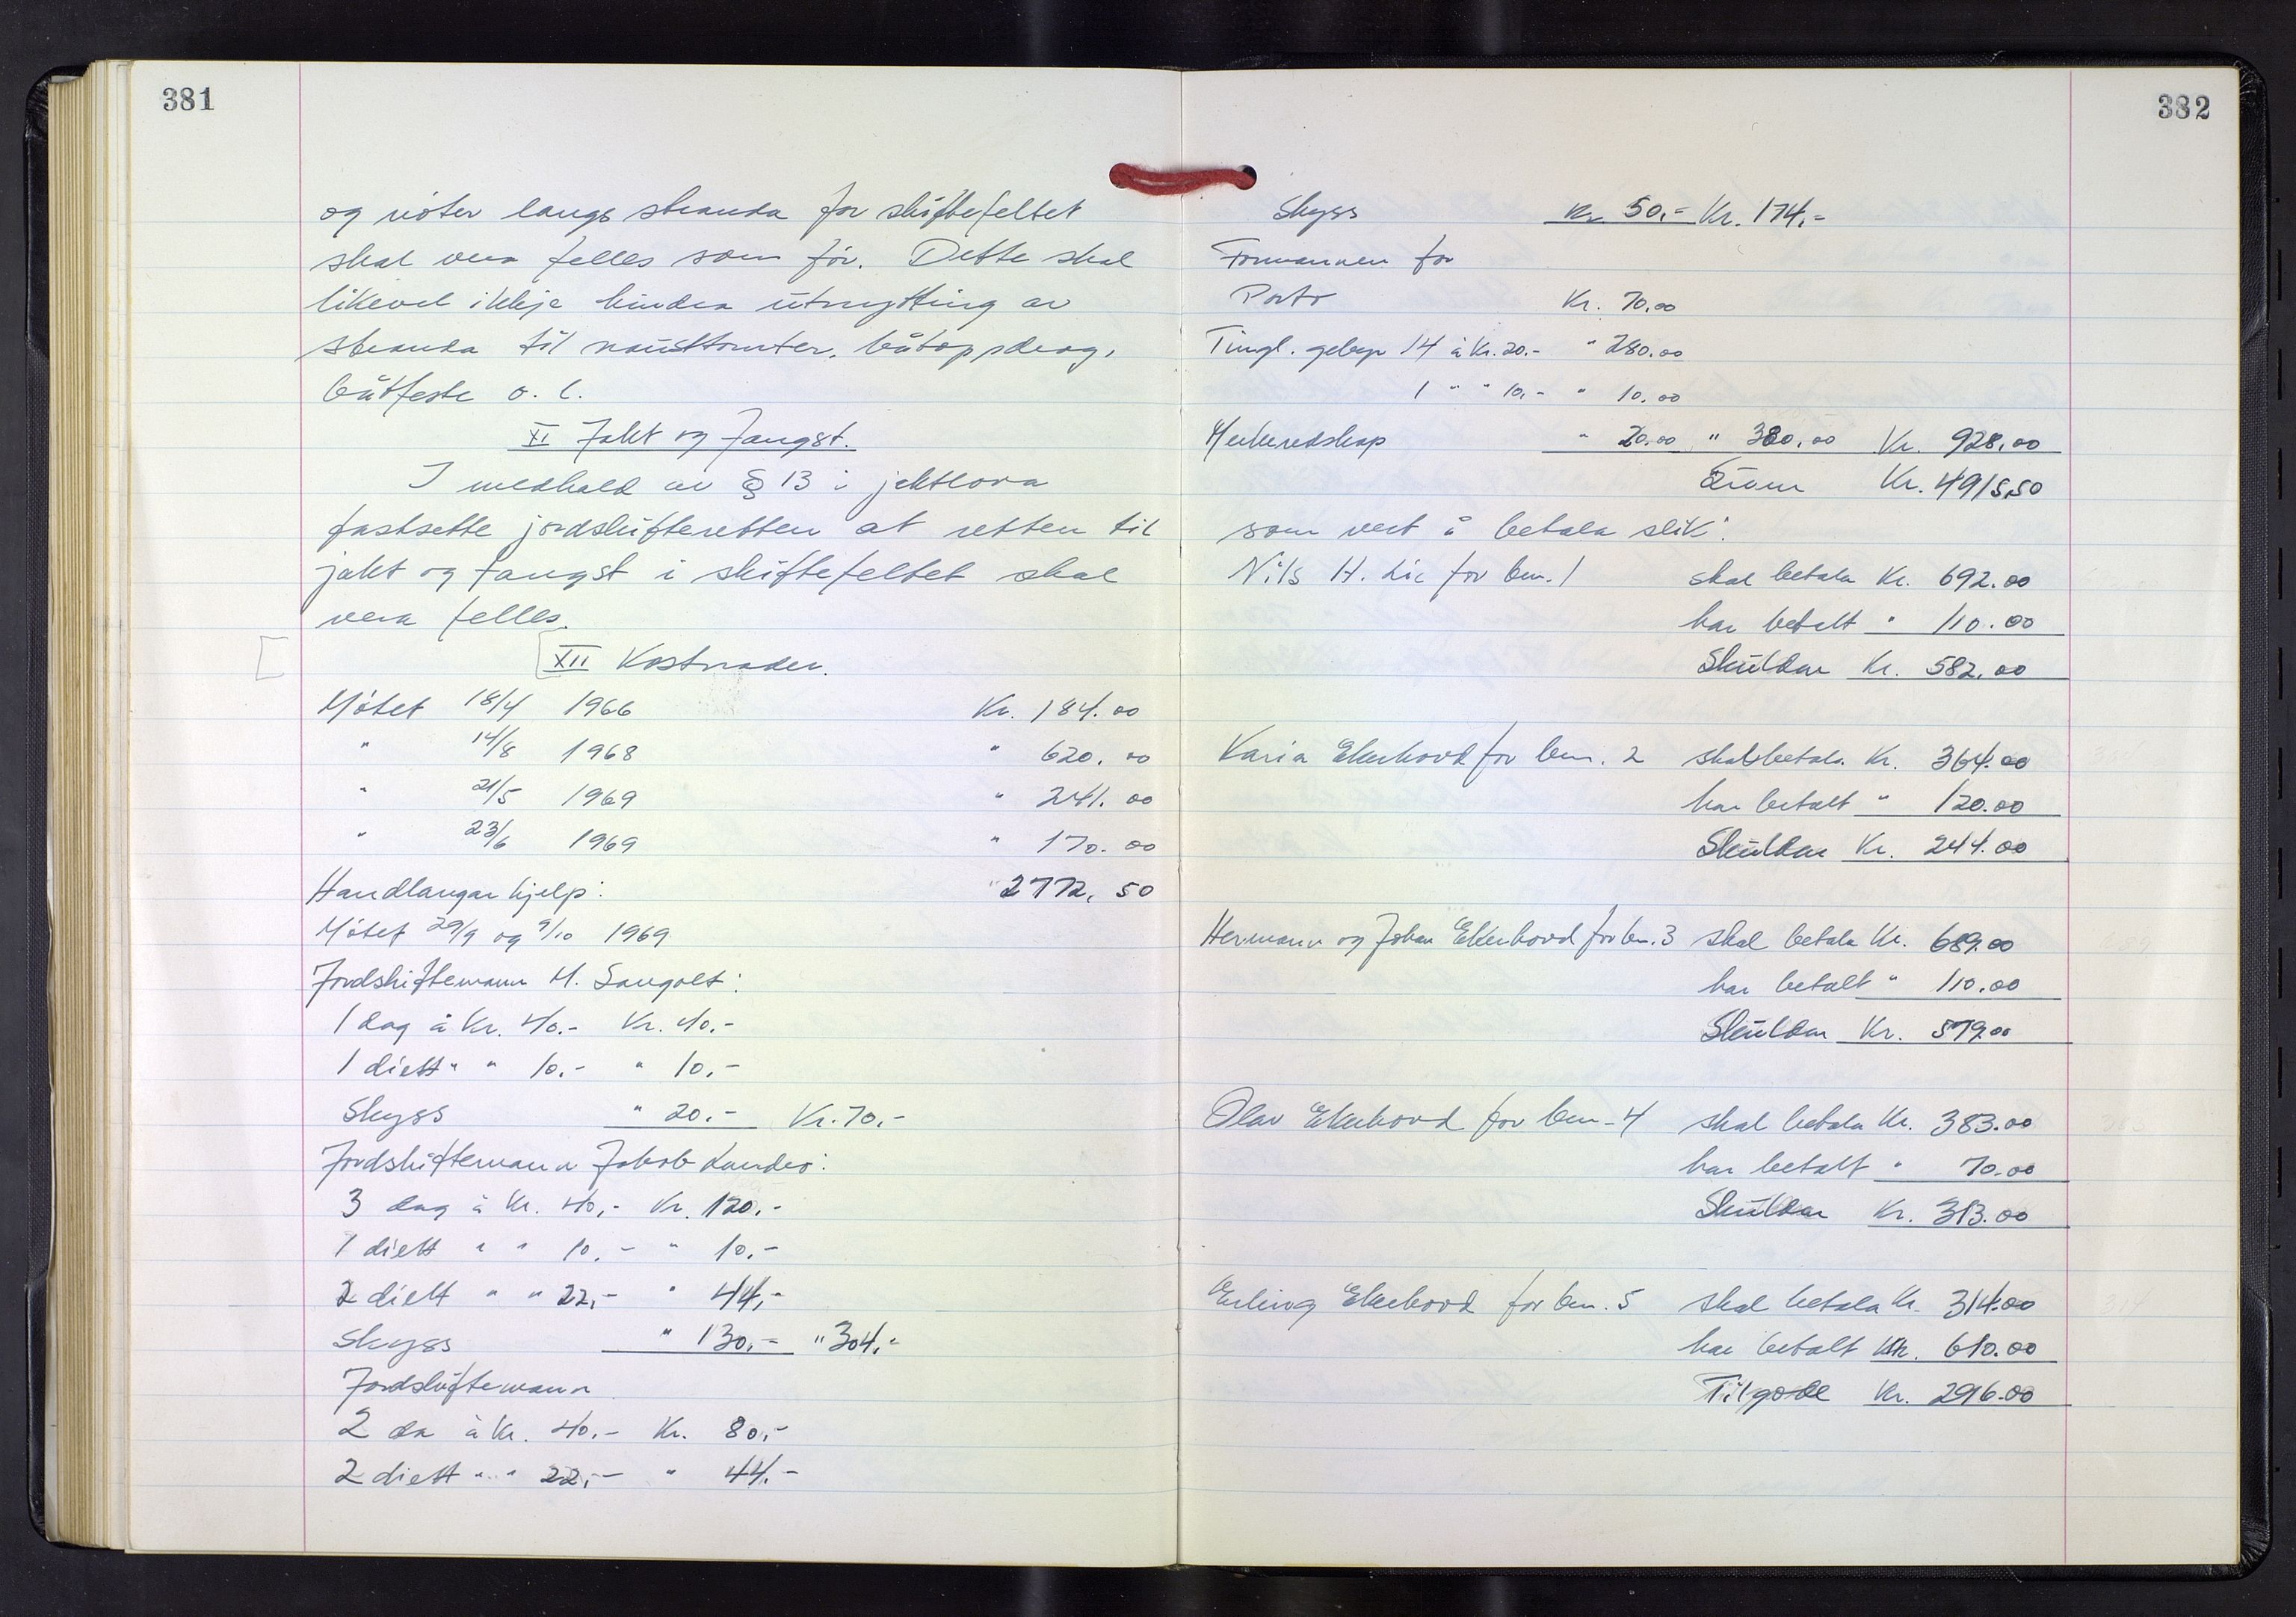 381
og nöter langs stranda for skiftefeltet
skal vera felles som för. Dette skal
likevel ikkje hindra utnytting av
stranda til nausttomter, båtoppdrag,
båtfeste o. l.
XI Jakt og fangst.
I medhald av § 13 i jaktlova
fastsette jordskifteretten at retten til
jakt og fangst i skiftefeltet skal
vera felles.
XII Kostnader.
Mötet 18/4 1966 Kr. 184.00
" 14/8 1968 " 620.00
" 21/5 1969 " 241.00
" 23/6 1969 " 170.00
Handlangarhjelp: " 2772,50
Mötet 29/9 og 9/10 1969
Jordskiftemann M. Sangolt:
1 dag à Kr. 40.- Kr. 40.-
1 diett " " 10.- " 10.-
Skyss " 20.- Kr. 70.-
Jordskiftemann Jakob Landro:
3 dag à Kr. 40,- Kr. 120.-
1 diett " " 10.- " 10.-
2 diett " " 22,- " 44,-
Skyss " 130,- " 304,-
Jordskiftemann
2 da à Kr. 40.- Kr. 80,-
2 diett " " 22,- " 44.-
382
Skyss Kr 50,- Kr. 174,-
Formannen for
Porto Kr. 70.00
Tingl. gebyr 14 à Kr. 20.- " 280.00
1 " " 10,- " 10.00
Merkeredskap " 20.00 " 380,00 Kr. 928,00
Sum Kr. 4915,50
som vert å betala slik:
Nils H. Lie for bnr. 1 skal betala Kr. 692.00
har betalt " 110.00
Skuldar Kr. 582,00
Karia Ekerhovd for bnr. 2 skal betala Kr. 364.00
har betalt " 120.00
Skuldar Kr. 244.00
Hermann og Johan Ekerhovd for bnr. 3 skal betala Kr. 689.00
har betalt " 110.00
Skuldar Kr. 579.00
Olav Ekerhovd for bnr. 4 skal betala Kr. 383.00
har betalt " 70.00
Skuldar Kr. 313.00
Erling Ekerhovd for bnr. 5 skal betala Kr. 314.00
har betalt Kr. 610.00
Tilgode Kr. 296.00